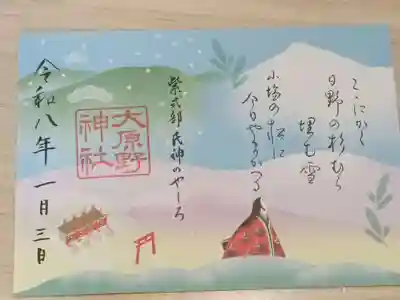 ここにかく
日野の杉むら
埋む雪
小塩の松に
今日やまがへる
紫式部 氏神のやしろ
大原野
神社
令和八年 一月三日